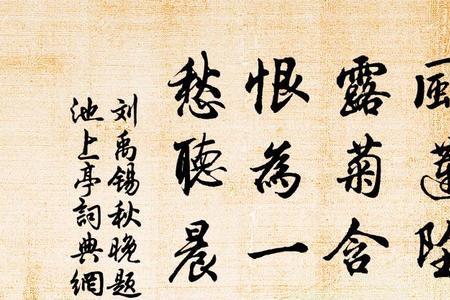 風蓮墜
露菊含
恨為一
愁聽晨
刘禹锡秋晚题
池上亭詞典網